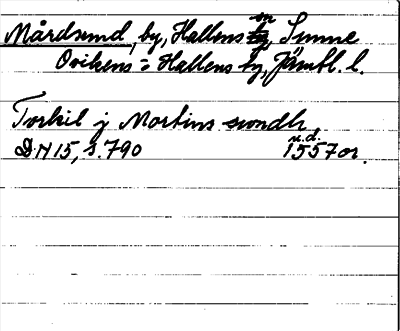 Mårdsund, by, Hallens sn, Sunne
Ovikens o Hallens tg, Jämtl. l.
Torkil j Mortins swndh
DN 15, s. 790 u.d. 1557 or.